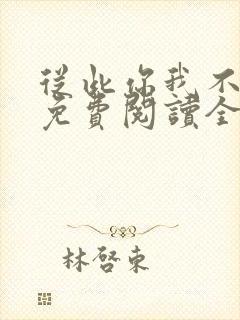 從此你我不
免費閱讀全
林啓東